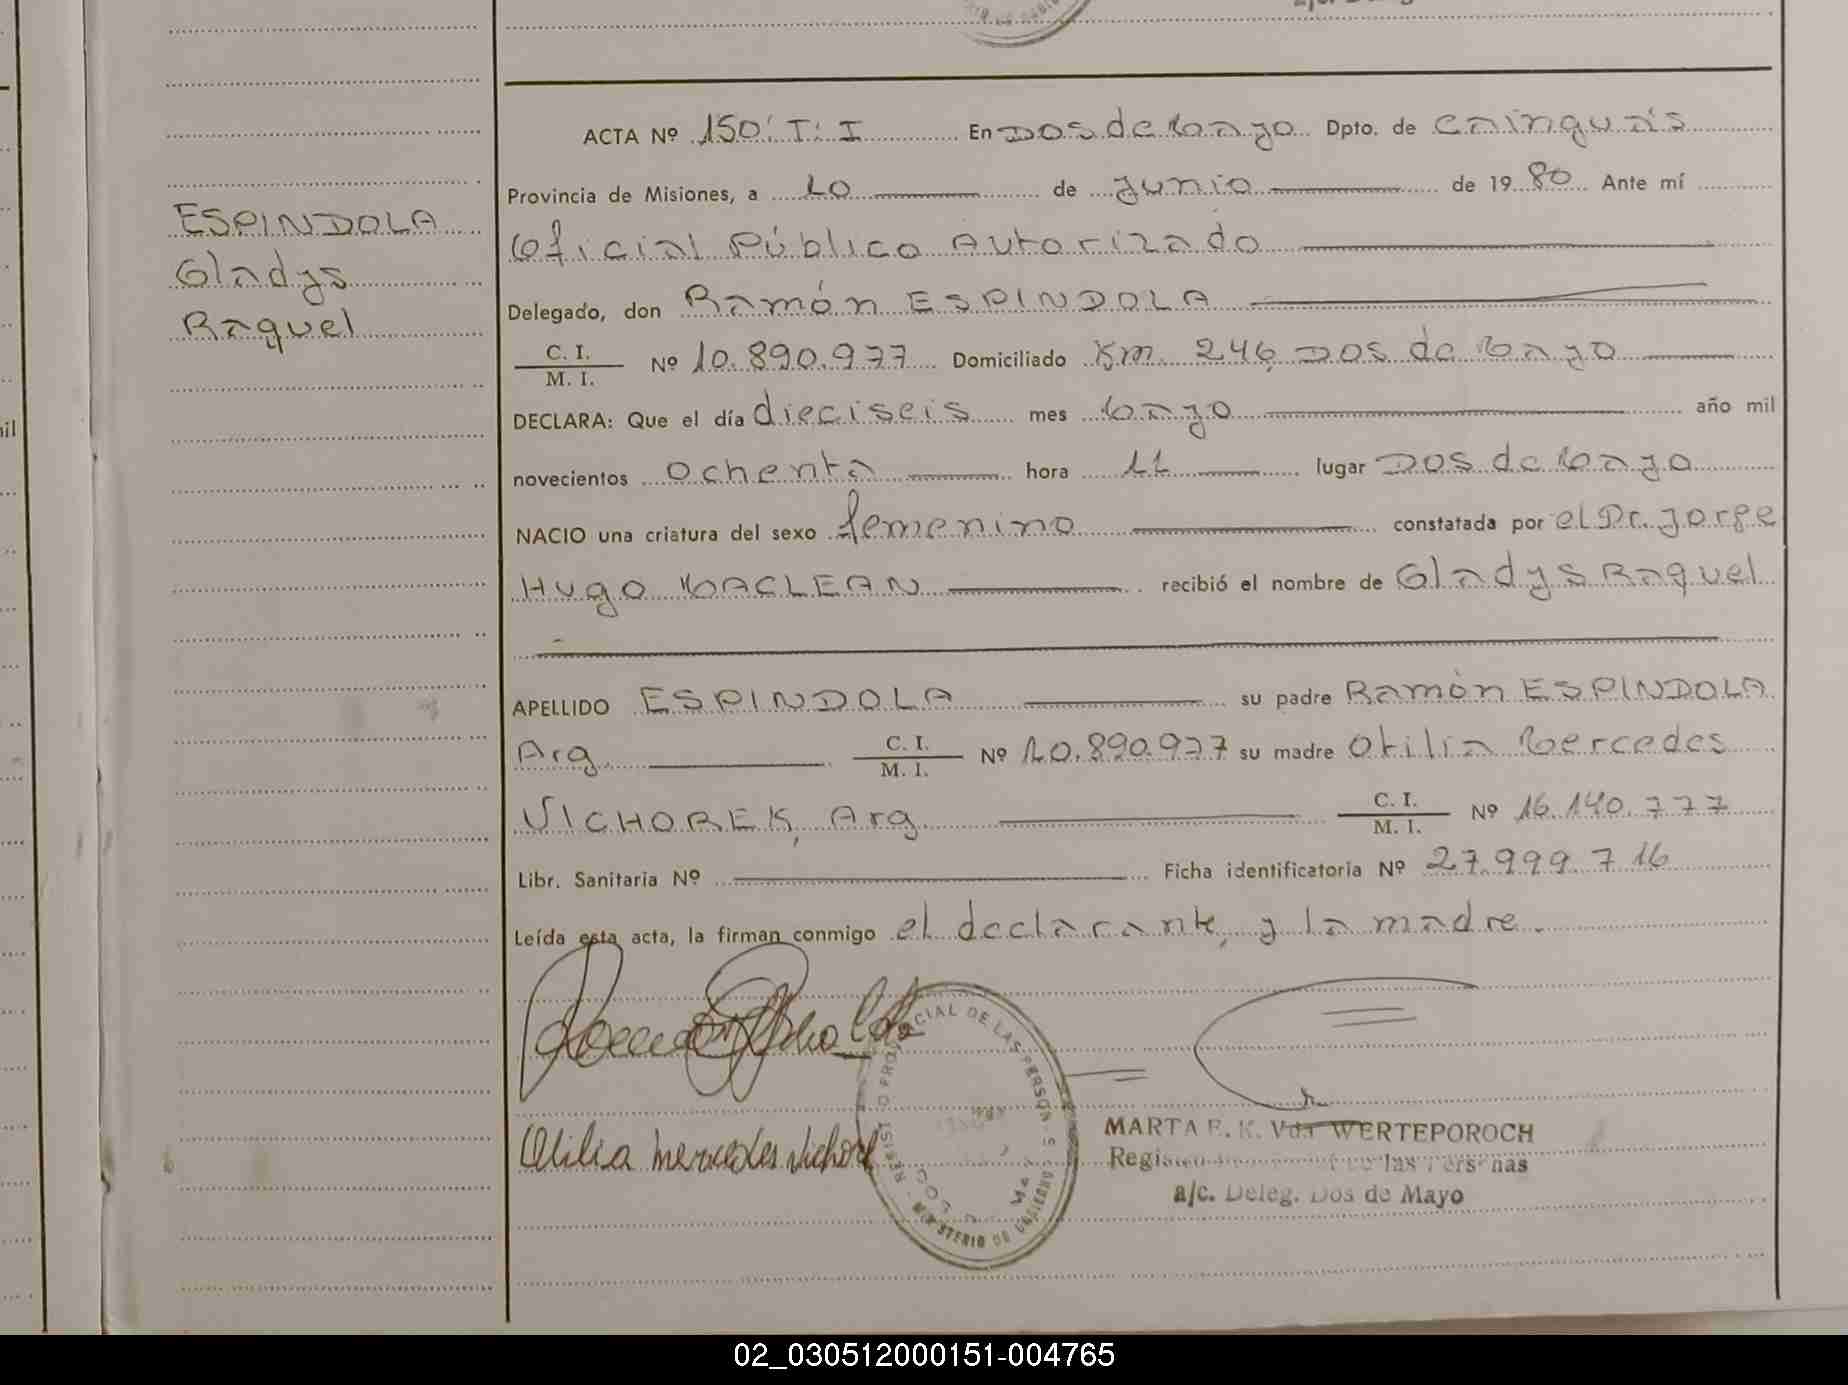 ESPINDOLA
Gladys
Raquel
ACTA Nº 150: T: I En Dos de Mayo Dpto. de Cainguás
Provincia de Misiones, a 10 de Junio de 1980 Ante mí
Oficial Público Autorizado
Delegado, don Ramón ESPINDOLA
C. I.
M. I. Nº 10.890.977 Domiciliado Km. 246, Dos de Mayo
DECLARA: Que el día dieciseis mes Mayo año mil
novecientos ochenta hora 11 lugar Dos de Mayo
NACIO una criatura del sexo femenino constatada por el Dr. Jorge
Hugo MACLEAN recibió el nombre de Gladys Raquel
APELLIDO ESPINDOLA su padre Ramón ESPINDOLA
Arg. C. I.
M. I. Nº 10.890.977 su madre Otilia Mercedes
VICHOREK, Arg. C. I.
M. I. Nº 16.140.777
Libr. Sanitaria Nº Ficha identificatoria Nº 27.999.716
Leída esta acta, la firman conmigo el declarante, y la madre.
Otilia Mercedes Vichorek
CIAL DE LAS PERSON S
MINISTERIO DE GOBIERNO
MARTA E. K. Vda WERTEPOROCH
las Personas
a/c. Deleg. Dos de Mayo
02_030512000151-004765